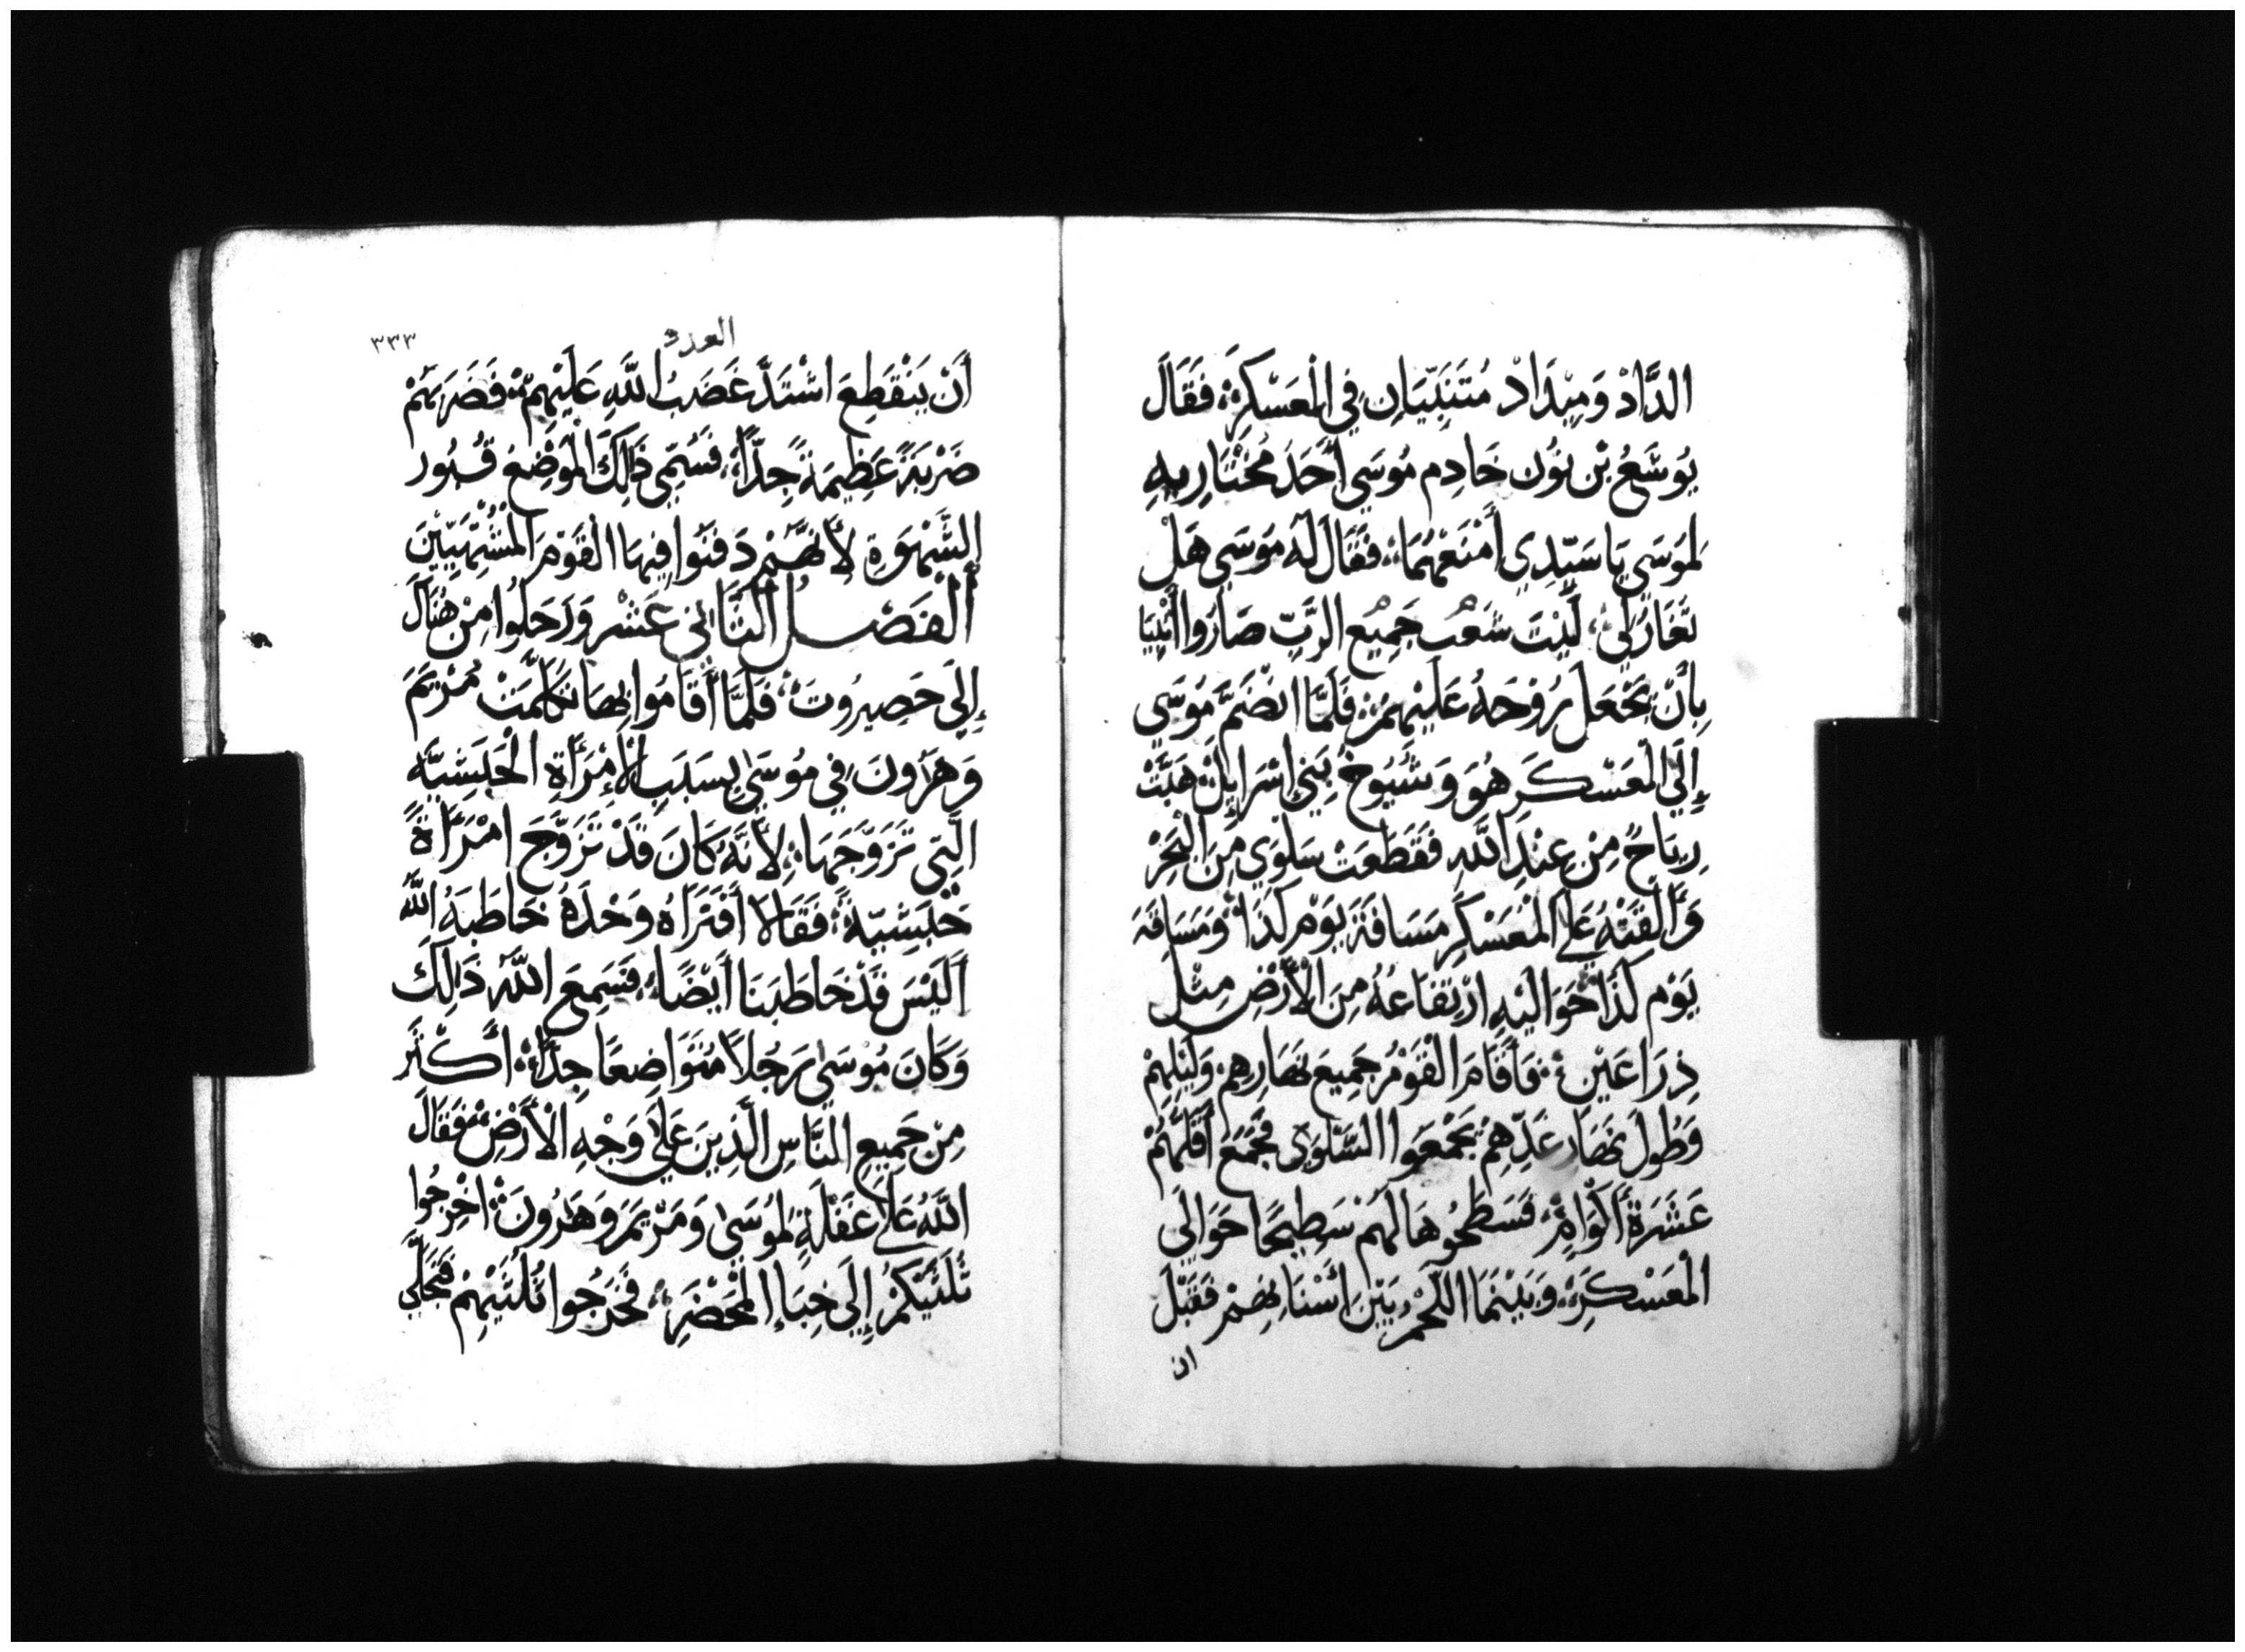 الدَّادْ وَمِيْدَادْ مُتَنَبِّيَانِ فِي الْمَعْسْكَرِ، فَقَالَ
يُوشَعُ بْن نُون خَادِم مُوسَي أَحَدَ مُخْتَارِيهِ
لِمُوسَي يَا سَيِّدِي أَمْنَعْهُمَا، فَقَالَ لَهُ مُوسَي هَلْ
تَغَارُ لِي، لَيْتَ شَعْب جَمِيْع الرَّبِّ صَارُوا أَنْبِيَا
بِأَنْ يَجْعَل رُوْحَهُ عَلَيْهِمْ، فَلَمَّا انْضَمَّ مُوسَي
إِلَي الْعَسْكَر هُوَ وَشُيُوخ بَنِي إِسْرَايِلْ، هَبَّتْ
رِيَاحٌ مِنْ عِنْدِ اللَّهِ فَقَطَعَتْ سَلْوَي مِنَ الْبَحْرْ
وَالْقَتْهُ عَلَى الْمَعَسْكَرِ مَسَافَة يَوْم كَذَا وَمَسَافَة
يَوْم كَذَا حَوَالَيْهِ ارْتِفَاعُهُ مِنَ الْأَرْضِ مِثْل
ذِرَاعَيْنِ، فَأَقَامَ الْقَوْمُ جَمِيعَ نَهَارِهِم وَلَيْلِهِمْ
وَطُولَ نَهَار غَدِّهِمْ يَجْمَعُوا السَّلْوَى فَجَمَعَ أَقَلُّهُمْ
عَشَرَةَ أَكْوَامٍ، فَسَطَحُوهَا لَهُم سَطِيحًا حَوَالَي
الْمَعَسْكَرِ، وَبَيْنَمَا اللَّحْم بَيْنَ أَسْنَانِهِمْ فَقَبْلَ
ان
٣٣٣
العدد
أَنْ يَنْقَطِعَ اشْتَدَّ غَضَبُ اللَّهِ عَلَيْهِمْ، فَضَرَبَهُمْ
ضَرْبَةً عَظِيمَةً جِدًّا، فَسُمِّي ذَلِكَ الْمَوْضِعُ قُبُور
الشَّهْوَةِ لأَنَّهُمْ دَفَنُوا فِيهَا الْقَوْمَ الْمُشْتَهِيِّيْنَ
الْفَصْلُ الثَّانِي عَشْر وَرَحَلُوا مِنْ هُنَاكَ
إِلَي حَصِيرُوتَ، فَلَمَّا أَقَامُوا بِهَا تَكَلَّمَتْ مَرْيَمَ
وَهَرُونَ فِي مُوسَي بِسَبَبِ الْإِمْرَأَةِ الْحَبَشِيَّه
الَّتِي تَزَوَّجَهَا، لِأَنَّهُ كَانَ قَدْ تَزَوَّجَ امْرَأَةً
حَبَشِيَّةً، فَقَالَا أَفَتَرَاهُ وَحْدَهُ خَاطَبَهُ اللَّهُ
أَلَيْسَ قَدْ خَاطَبَنَا أَيْضًا، فَسَمِعَ اللَّهُ ذَلِكَ
وَكَانَ مُوسَى رَجُلاً مُتَوَاضِعًا جِدًّا، أَكْثَر
مِنْ جَمِيعِ النَّاسِ الَّذِينَ عَلَى وَجْهِ الْأَرْضِ، فَقَالَ
اللَّهُ عَلَى غَفْلَةٍ لِمُوسَى وَمَرْيَمَ وَهَرُونَ، اخْرِجُوا
ثَلَثَتُكُمْ إِلَي خِبَاءِ الْمَحْضَرِ، فَخَرَجُوا ثَلَثَتُهِمْ فَتَجَلَّي